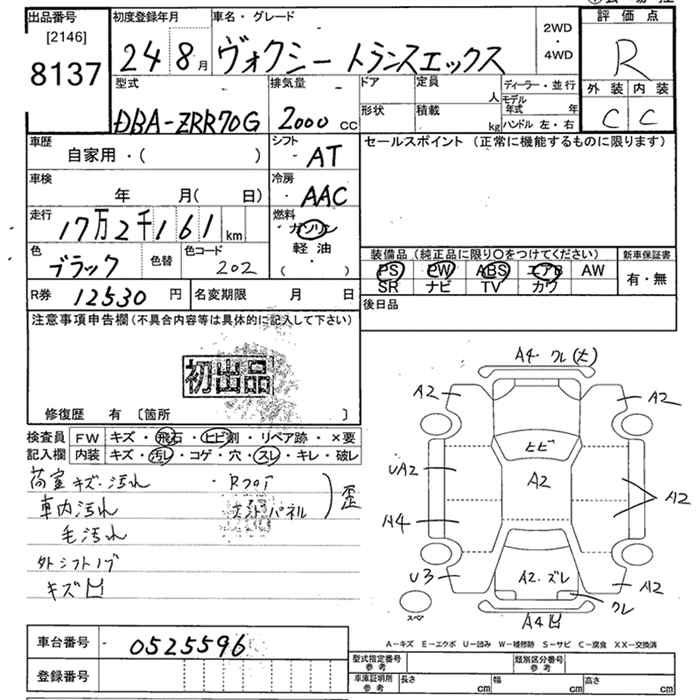 出品番号
[2146]
8137
初度登録年月
24 8月
車名・グレード
ヴォクシー トランスエックス
2WD
・
4WD
評価点
R
外装 内装
C C
型式
DBA-ZRR70G
排気量
2000 cc
ドア
形状
定員 人
積載 kg
ディーラー・並行
モデル年式 年
ハンドル 左・右
車歴
自家用・( )
シフト
AT
セールスポイント (正常に機能するものに限ります)
車検
年 月( 日)
冷房
AAC
走行
17万2千161 km
燃料
ガソリン
軽油
・
( )
色
ブラック
色替
色コード
202
装備品 (純正品に限り○をつけてください)
PS PW ABS エアB AW
SR ナビ TV カワ
新車保証書
有・無
R券 12530 円
名変期限 月 日
後日品
注意事項申告欄(不具合内容等は具体的に記入して下さい)
初出品
修復歴 有 〔箇所 〕
検査員 FW キズ・飛石・ヒビ割・リペア跡・×要
記入欄 内装 キズ・汚レ・コゲ・穴・スレ・キレ・破レ
荷室キズ・汚れ ・Rフロア
車内汚れ
パネル
歪
毛汚れ
外シフトノブ
キズ凹
A4・クレ(大)
A2 A2
ヒビ
UA2 A2 A2
A4
U3 A2・ズレ A2
クレ
スペア
A4凹
A-キズ E-エクボ U-凹み W-補修跡 S-サビ C-腐食 XX-交換済
車台番号 0525596
登録番号
型式指定番号
参考
類別区分番号
参考
車庫証明所
参考
長さ cm 幅 cm 高さ cm